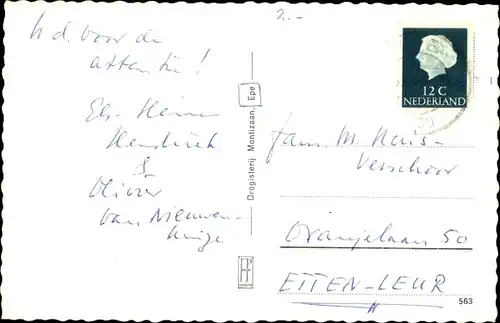 2.-
h.d. voor de
attentie!
Hendrik
&
Olivier
van Nieuwen-
huize
Drogisterij Montizaan, Epe
12 C
NEDERLAND
Fam. M.
Verschoor
Oranjelaan 50
ETTEN-LEUR
563